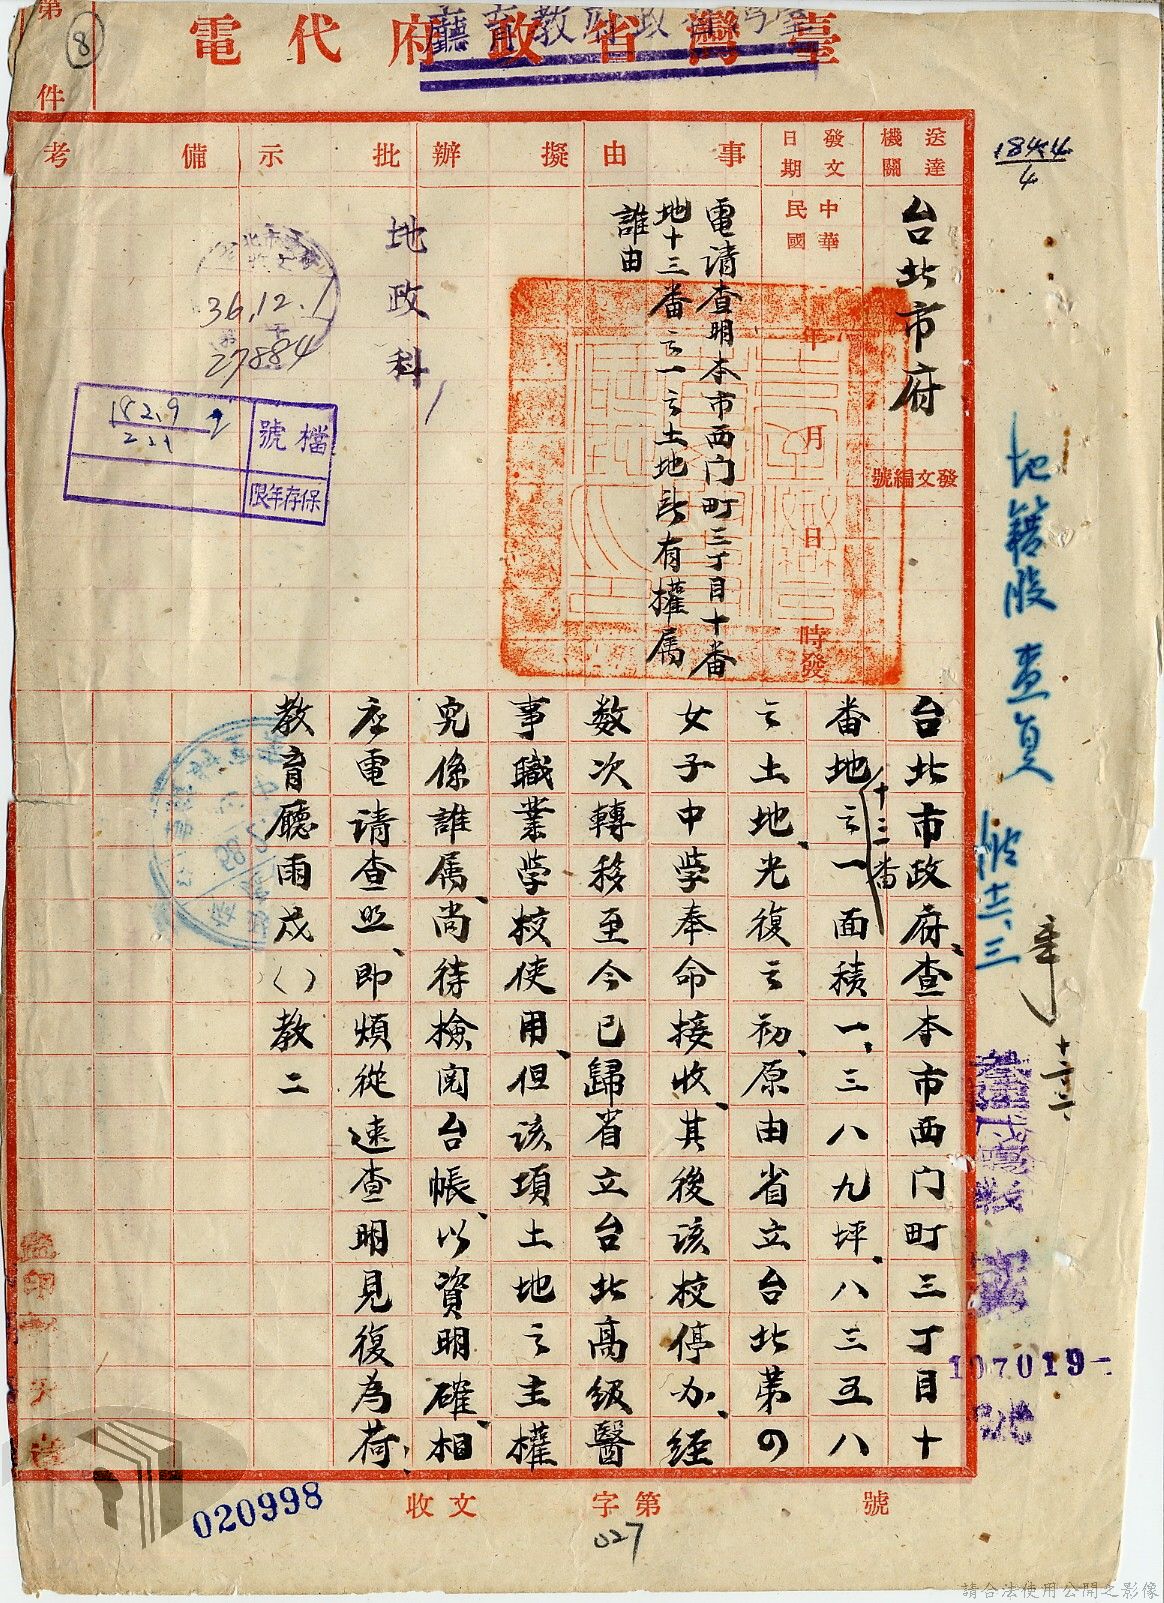 臺灣省政府代電
教育廳
第
件
8
送達機關
發文日期
事由
擬辦
批示
備考
台北市府
中華民國
年
月
日
時發
發文編號
電請查明本市西门町三丁目十番
地十三番之一之土地所有權属
誰由
地政科
36.12.1
27884
檔號
182.9
221
2
保存年限
18424
4
地籍股 查复
十二、三
台北市政府、查本市西门町三丁目十
番地之一面積一、三八九坪、八三五八
十三番
之土地、光復之初、原由省立台北第四
女子中学奉命接收、其後該校停办、經
数次轉移至今已歸省立台北高級醫
事職業学校使用、但該項土地之主權
究係誰属、尚待檢閲台帳、以資明確、相
应電請查照、即煩從速查明見復為荷、
教育廳雨戍()教二
107019
號
監印
020998
收文
字第
號
027
請合法使用公開之影像